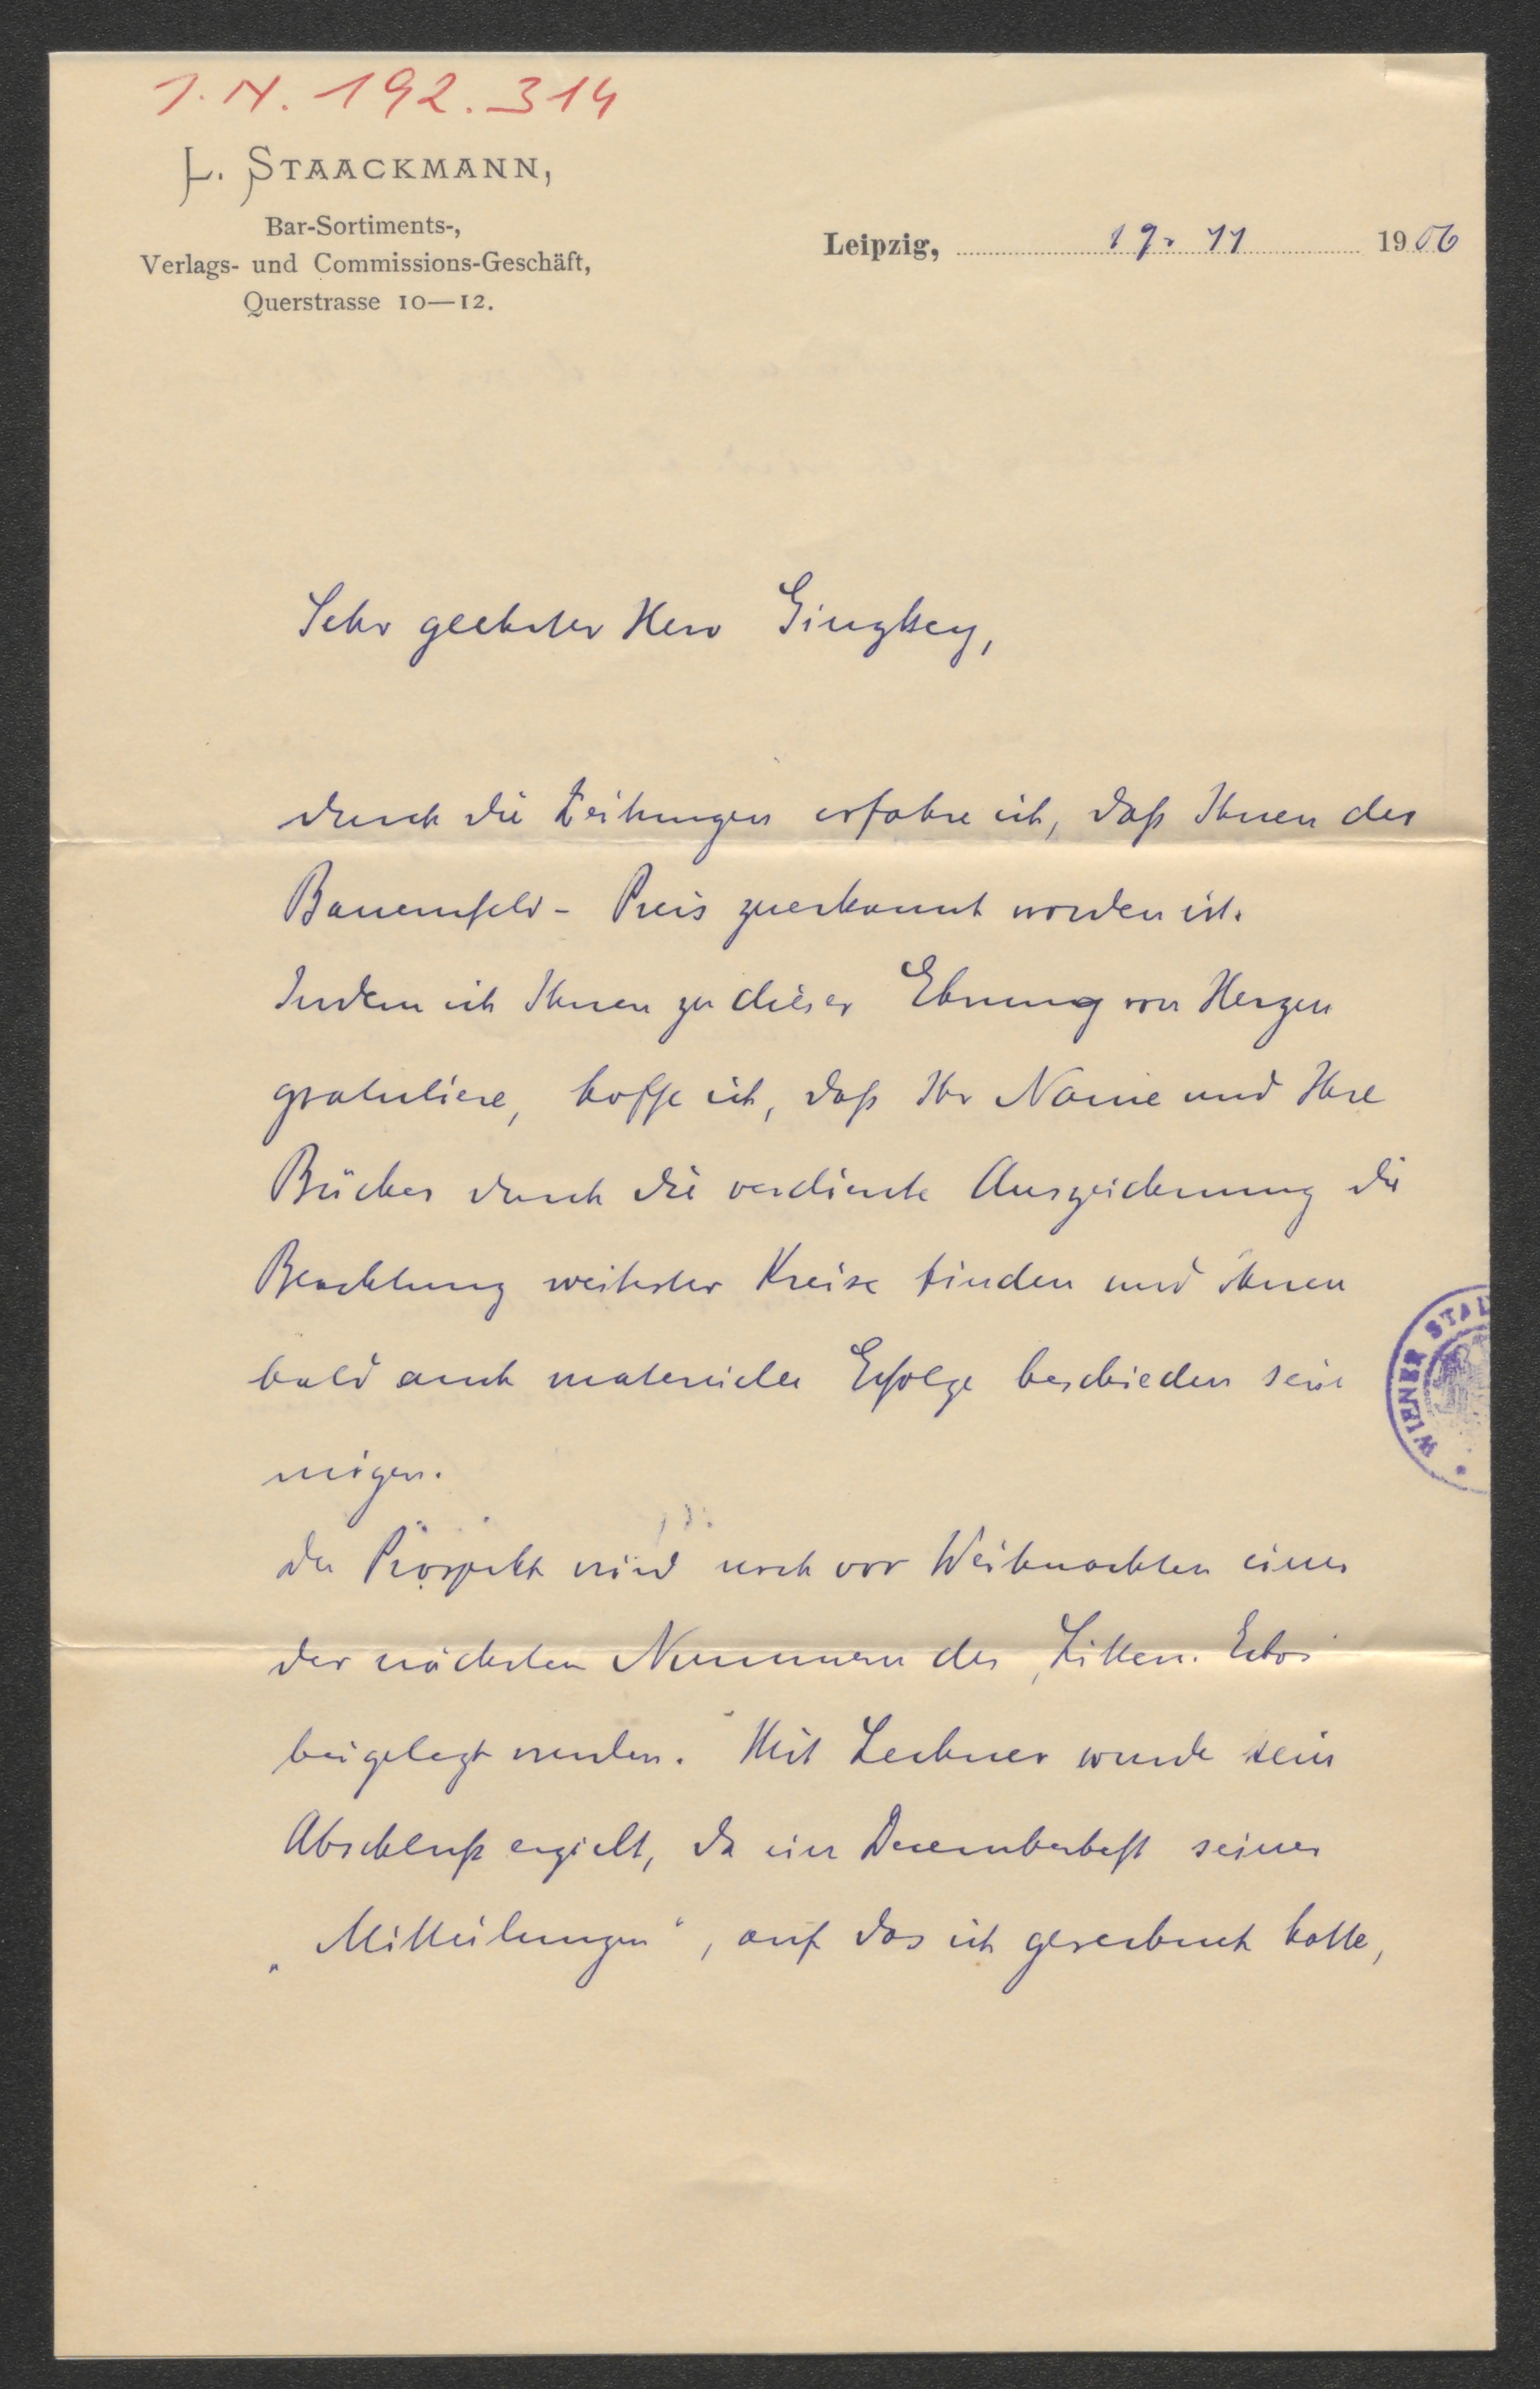 J. N. 192.314
L. STAACKMANN,
Bar-Sortiments-,
Verlags- und Commissions-Geschäft,
Querstrasse 10—12.
Leipzig, 19. 11 1906
Sehr geehrter Herr Ginzkey,
durch die Zeitungen erfahre ich, daß Ihnen der
Bauernfeld- Preis zuerkannt worden ist.
Indem ich Ihnen zu dieser Ehrung von Herzen
gratuliere, hoffe ich, daß Ihr Name und Ihre
Bücher durch die verdiente Auszeichnung die
Beachtung weitester Kreise finden und Ihnen
bald auch materielle Erfolge beschieden sein
mögen.
Der Prospekt wird noch vor Weihnachten einer
der nächsten Nummern des „Litter. Echo“
beigelegt werden. Mit Lechner wurde kein
Abschluß erzielt, da ein Dezemberheft seiner
„Mitteilungen“, auf das ich gerechnet hatte,
WIENER STAD